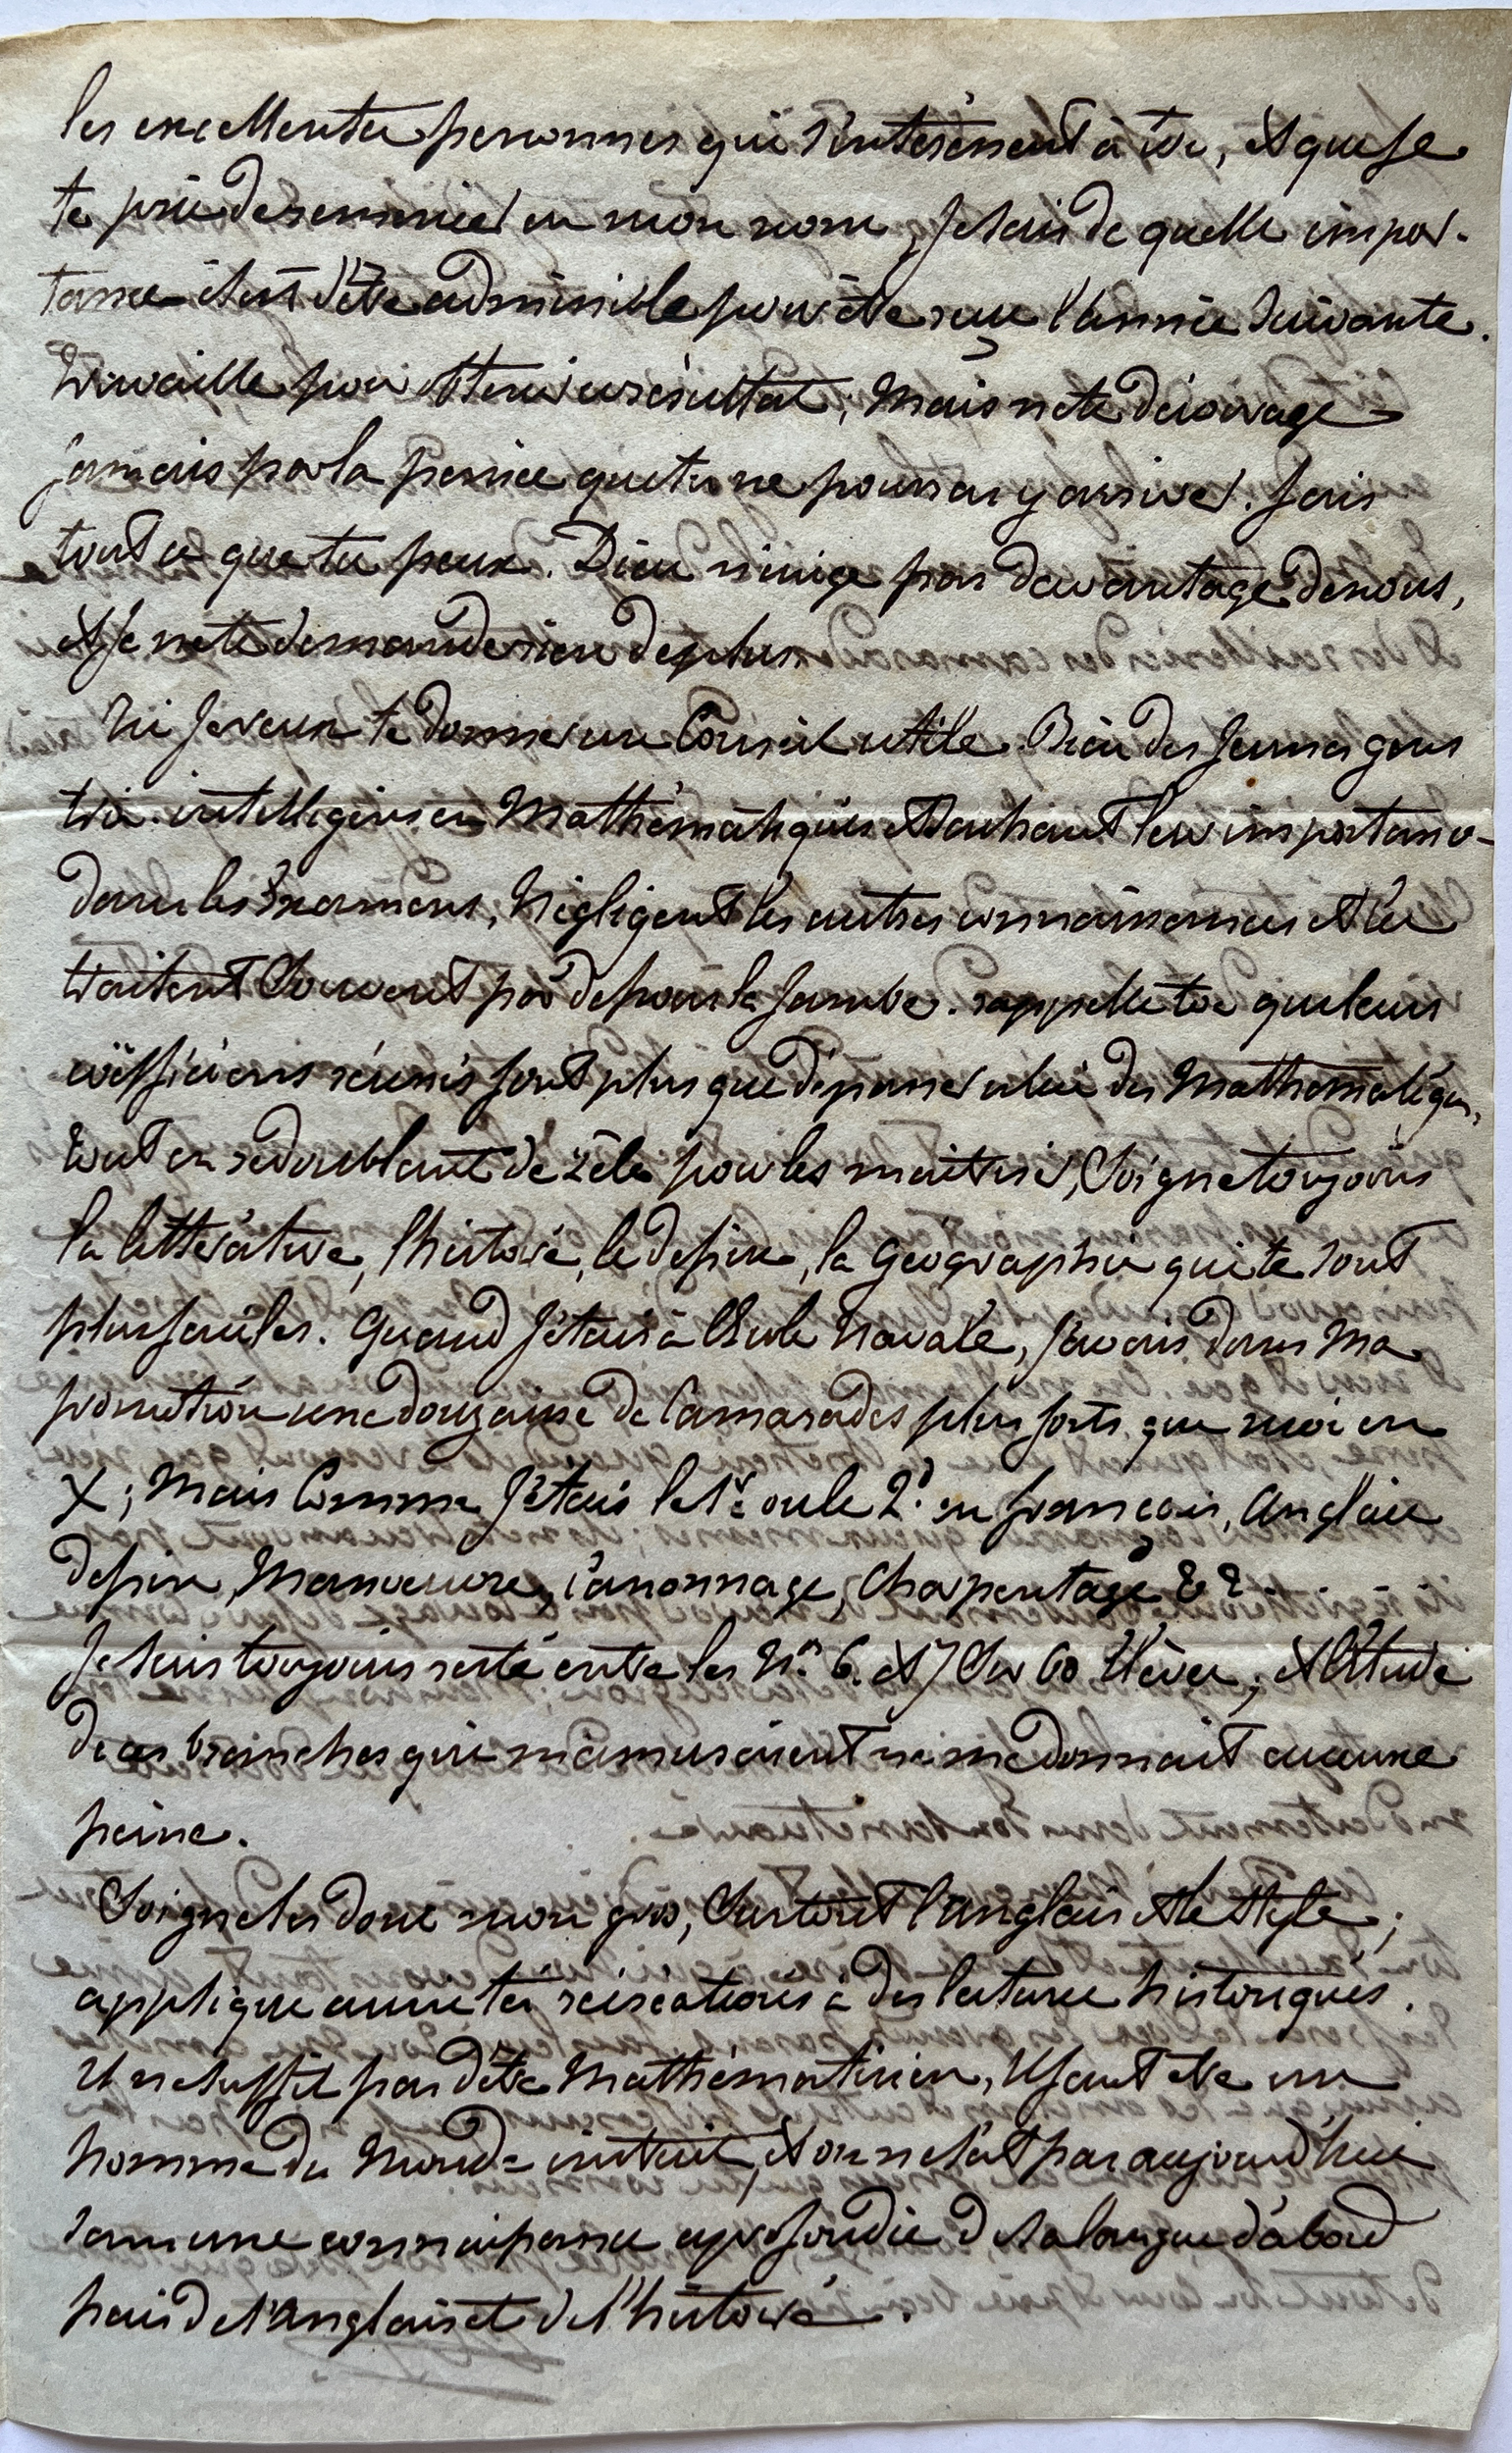 les excellentes personnes qui s'intéressent à toi, et que je
te prie de remercier en mon nom, je sais de quelle impor-
tance c'est d'être admissible pour être reçu l'année suivante.
Travaille pour obtenir ce résultat; mais ne te décourage
jamais par la pensée que tu ne pourras y arriver. fais
tout ce que tu peux. Dieu n'exige pas davantage de nous,
et je ne te demande rien de plus.
Ici je veux te donner un Conseil utile. Bien des jeunes gens
très intelligens en Mathématiques et sachant leur importance
dans les Examens, Négligent les autres connaissances et les
traitent Souvent par dessous la jambe. rappelle toi que leurs
coëfficiens réunis font plus que dépasser celui des Mathématiques,
tout en redoublant de zèle pour les maitriser, Soigne toujours
la littérature, l'histoire, le dessin, la Géographie qui te sont
plus faciles. Quand j'étais à l'Ecole Navale, j'avais dans Ma
promotion une douzaine de Camarades plus forts que moi en
X; Mais Comme j'étais le 1er ou le 2d en françois, Anglais
dessin, Manoeuvre, Canonnage, Charpentage &&...
Je suis toujours resté entre les Nos 6 et 7 Sur 60 Elèves; et l'Etude
de ces branches qui m'amusaient ne me donnait aucune
peine.
Soigne les donc mon gros, Surtout l'Anglais et le Style;
applique aussi tes récréations à des lectures historiques.
Il ne suffit pas d'être Mathématicien, Il faut être un
homme du Monde instruit, et on ne l'est pas aujourd'hui
sans une connaissance approfondie de sa langue d'abord
puis de l'anglais et de l'histoire.